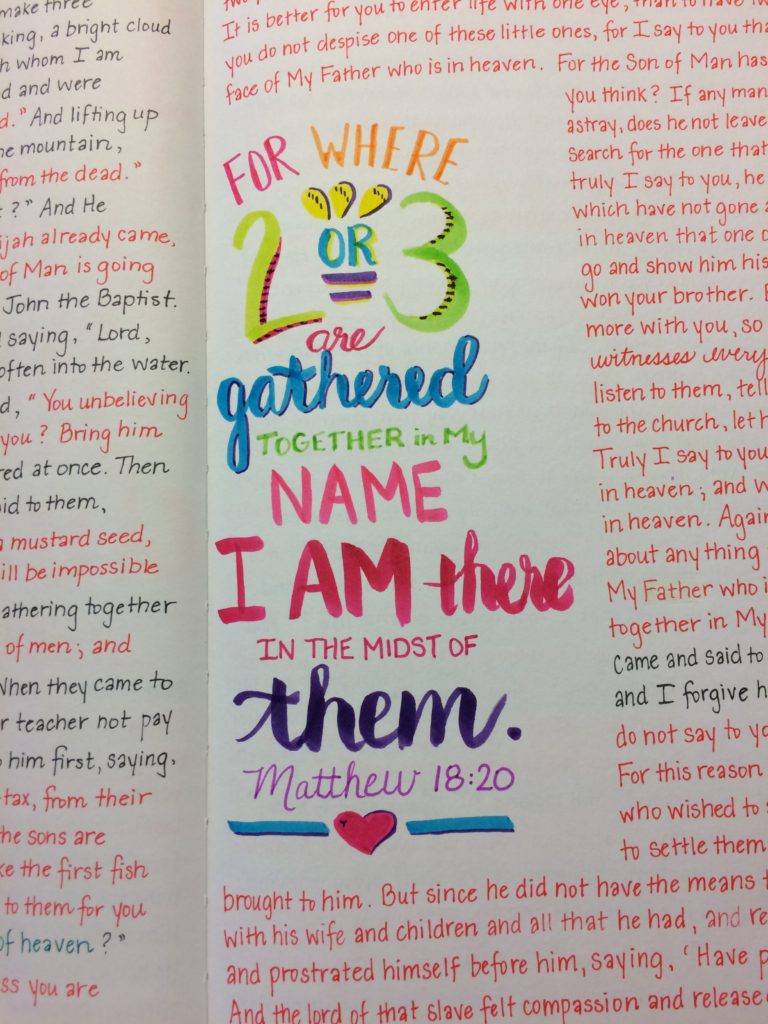 make three
king, a bright cloud
h whom I am
d and were
d." And lifting up
he mountain,
from the dead."
t?" And He
ijah already came,
of Man is going
John the Baptist.
l saying, "Lord,
often into the water.
d, "You unbelieving
you? Bring him
red at once. Then
aid to them,
a mustard seed,
ill be impossible
athering together
of men; and
When they came to
r teacher not pay
o him first, saying,
-tax, from their
he sons are
ke the first fish
to them for you
of heaven?"
ss you are
It is better for you to enter life with one eye, than to have
you do not despise one of these little ones, for I say to you tha
face of My Father who is in heaven. For the Son of Man has
you think? If any man
astray, does he not leave
search for the one that
truly I say to you, he
which have not gone a
in heaven that one o
go and show him his
won your brother.
more with you, so
witnesses every
listen to them, tell
to the church, let h
Truly I say to you
in heaven; and w
in heaven. Again
about anything
My Father who i
together in My
Came and said to
and I forgive h
do not say to yo
For this reason
who wished to s
to settle them
FOR WHERE
2 OR 3
are
gathered
TOGETHER in My
NAME
I AM there
IN THE MIDST OF
them.
Matthew 18:20
brought to him. But since he did not have the means t
with his wife and children and all that he had, and re
and prostrated himself before him, saying, 'Have p
And the lord of that slave felt compassion and release